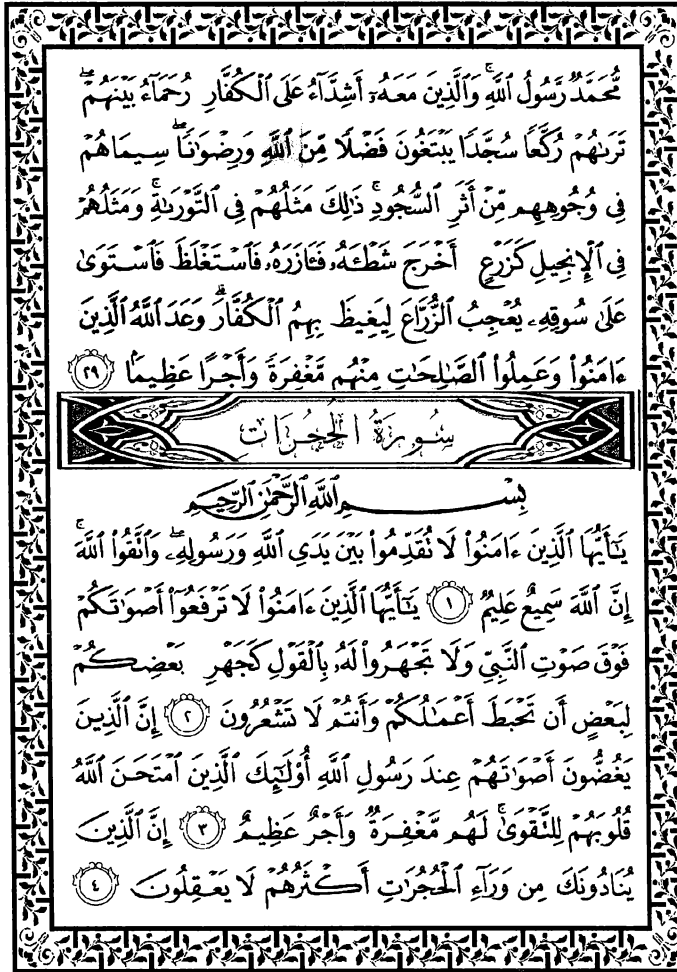 مُّحَمَّدٌ رَّسُولُ ٱللَّهِ ۚ وَٱلَّذِينَ مَعَهُۥٓ أَشِدَّآءُ عَلَى ٱلْكُفَّارِ رُحَمَآءُ بَيْنَهُمْ ۖ
تَرَىٰهُمْ رُكَّعًا سُجَّدًا يَبْتَغُونَ فَضْلًا مِّنَ ٱللَّهِ وَرِضْوَٰنًا ۖ سِيمَاهُمْ
فِى وُجُوهِهِم مِّنْ أَثَرِ ٱلسُّجُودِ ۚ ذَٰلِكَ مَثَلُهُمْ فِى ٱلتَّوْرَىٰةِ ۚ وَمَثَلُهُمْ
فِى ٱلْإِنجِيلِ كَزَرْعٍ أَخْرَجَ شَطْـَٔهُۥ فَـَٔازَرَهُۥ فَٱسْتَغْلَظَ فَٱسْتَوَىٰ
عَلَىٰ سُوقِهِۦ يُعْجِبُ ٱلزُّرَّاعَ لِيَغِيظَ بِهِمُ ٱلْكُفَّارَ ۗ وَعَدَ ٱللَّهُ ٱلَّذِينَ
ءَامَنُوا۟ وَعَمِلُوا۟ ٱلصَّـٰلِحَـٰتِ مِنْهُم مَّغْفِرَةً وَأَجْرًا عَظِيمًۢا ٢٩
سُورَةُ الْحُجُرَاتِ
بِسْمِ ٱللَّهِ ٱلرَّحْمَـٰنِ ٱلرَّحِيمِ
يَـٰٓأَيُّهَا ٱلَّذِينَ ءَامَنُوا۟ لَا تُقَدِّمُوا۟ بَيْنَ يَدَىِ ٱللَّهِ وَرَسُولِهِۦ ۖ وَٱتَّقُوا۟ ٱللَّهَ ۚ
إِنَّ ٱللَّهَ سَمِيعٌ عَلِيمٌ ١ يَـٰٓأَيُّهَا ٱلَّذِينَ ءَامَنُوا۟ لَا تَرْفَعُوٓا۟ أَصْوَٰتَكُمْ
فَوْقَ صَوْتِ ٱلنَّبِىِّ وَلَا تَجْهَرُوا۟ لَهُۥ بِٱلْقَوْلِ كَجَهْرِ بَعْضِكُمْ
لِبَعْضٍ أَن تَحْبَطَ أَعْمَـٰلُكُمْ وَأَنتُمْ لَا تَشْعُرُونَ ٢ إِنَّ ٱلَّذِينَ
يَغُضُّونَ أَصْوَٰتَهُمْ عِندَ رَسُولِ ٱللَّهِ أُو۟لَـٰٓئِكَ ٱلَّذِينَ ٱمْتَحَنَ ٱللَّهُ
قُلُوبَهُمْ لِلتَّقْوَىٰ ۚ لَهُم مَّغْفِرَةٌ وَأَجْرٌ عَظِيمٌ ٣ إِنَّ ٱلَّذِينَ
يُنَادُونَكَ مِن وَرَآءِ ٱلْحُجُرَٰتِ أَكْثَرُهُمْ لَا يَعْقِلُونَ ٤